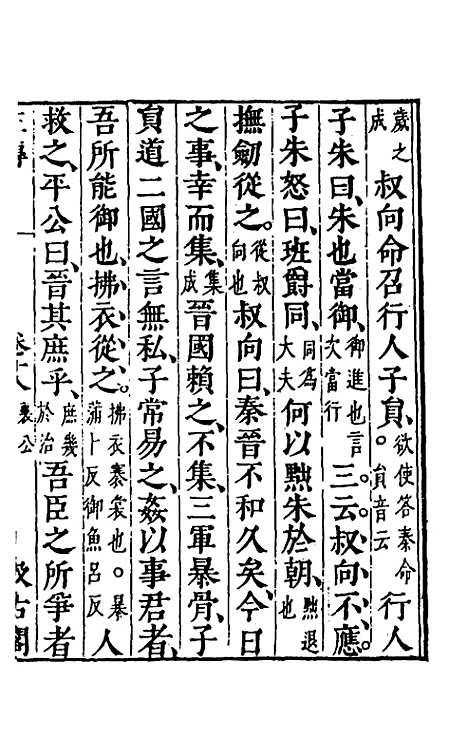 歲之成叔向命召行人子員。欲使答秦命員音云行人
子朱曰、朱也當御、御進也言次當行三云叔向不應。
子朱怒曰、班爵同、同為大夫何以黜朱於朝、黜退也
撫劒從之。從叔向也叔向曰、秦晉不和久矣、今日
之事、幸而集、集成晉國賴之、不集、三軍暴骨、子
員道二國之言無私、子常易之、姦以事君者、
吾所能御也、拂衣從之。拂衣褰裳也。暴蒲卜反御魚呂反人
救之、平公曰、晉其庶乎、庶幾於治吾臣之所爭者
卷十八 襄公 汲古閣